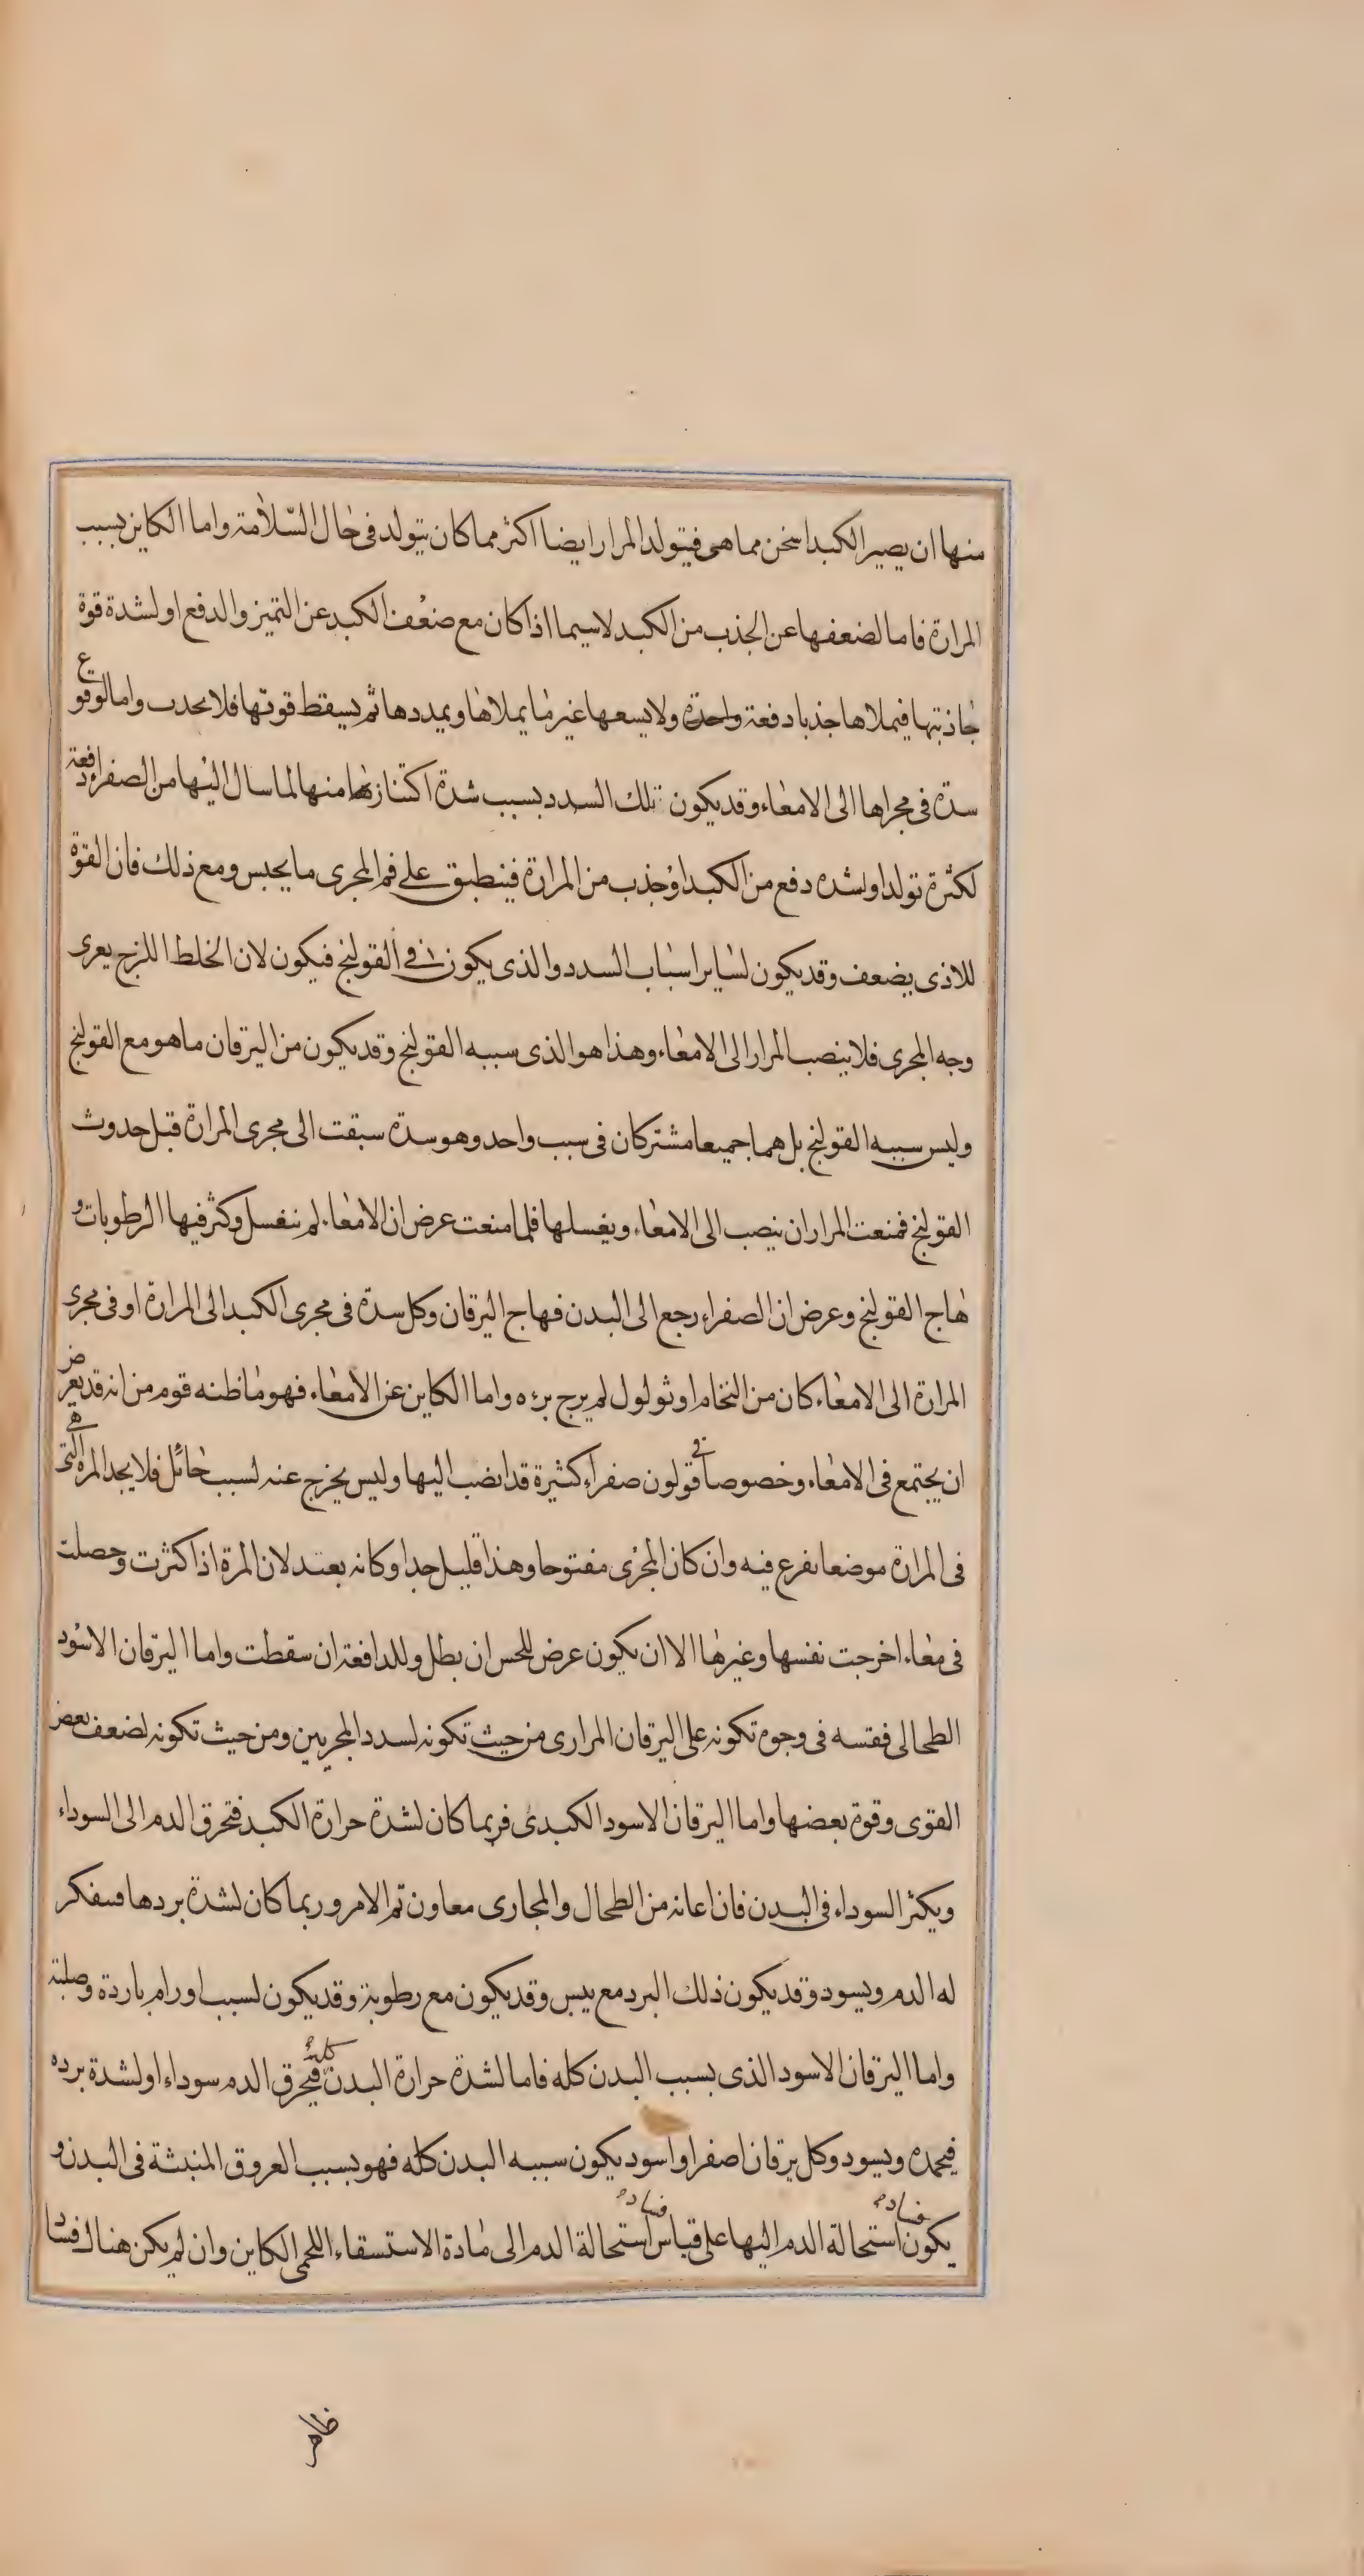 منها ان يصير الكبد اسخن مما هى فيتولد المرار ايضا اكثر مما كان يتولد فى حال السّلامة واما الكاين بسبب
المرارة فاما لضعفها عن الجذب من الكبد لاسيما اذا كان مع ضعف الكبد عن التميز والدفع او لشدة قوة
جاذبتها فيملاها جذبا دفعة واحدة ولا يسعها غير ما يملاها ويمددها ثم يسقط قوتها فلا يحدب واما لوقوع
سدّة فى مجراها الى الامعاء وقد يكون تلك السدد بسبب شدة اكتنازها منها لما سال اليها من الصفراء دفعة
لكثرة تولد او لشده دفع من الكبد او جذب من المرارة فينطبق على فم المجرى ما يحبس ومع ذلك فان القوة
للاذى يضعف وقد يكون لساير اسباب السدد والذى يكون فى القولنج فيكون لان الخلط اللزج يعرى
وجه المجرى فلا ينصب المرار الى الامعاء وهذا هو الذى سببه القولنج وقد يكون من اليرقان ما هو مع القولنج
وليس سببه القولنج بل هما جميعا مشتركان فى سبب واحد وهو سدة سبقت الى مجرى المرارة قبل حدوث
القولنج فمنعت المرار ان ينصب الى الامعاء ويغسلها فلما منعت عرض ان الامعاء لم ينغسل وكثر فيها الرطوبات و
هاج القولنج وعرض ان الصفراء رجع الى البدن فهاج اليرقان وكل سدة فى مجرى الكبد الى المرارة او فى مجرى
المرارة الى الامعاء كان من التخام او ثولول لم يرج برءه واما الكاين عن الامعاء فهو ما ظنه قوم من انه قد يعرض
ان يجتمع فى الامعاء وخصوصا فى قولون صفراء كثيرة قد انصب اليها وليس يخرج عنه لسبب حائل فلا يجد المرة التى هى
فى المرارة موضعا يفرغ فيه وان كان المجرى مفتوحا وهذا قليل جدا وكانه بعيد لان المرة اذا كثرت وحصلت
فى معاء اخرجت نفسها وغيرها الا ان يكون عرض للحس ان بطل وللدافعة ان سقطت واما اليرقان الاسود
الطحالى فقسه فى وجوه تكونه على اليرقان المرارى من حيث تكونه لسدد المجريين ومن حيث تكونه لضعف بعض
القوى وقوة بعضها واما اليرقان الاسود الكبدى فربما كان لشدة حرارة الكبد فتحرق الدم الى السوداء
ويكثر السوداء فى البدن فان اعانه من الطحال والمجارى معاون تم الامر وربما كان لشدة بردها فيعكر
له الدم ويسود وقد يكون ذلك البرد مع يبس وقد يكون مع رطوبة وقد يكون لسبب اورام باردة وصلبة
واما اليرقان الاسود الذى بسبب البدن كله فاما لشدة حرارة البدن كله فيحرق الدم سوداء او لشدة برده
فيجمده ويسود وكل يرقان اصفر او اسود يكون سببه البدن كله فهو بسبب العروق المنبثة فى البدن و
يكون فساد استحالة الدم اليها على قياس فساد استحالة الدم الى مادة الاستسقاء اللحمى الكاين وان لم يكن هناك فساد
ظاهر